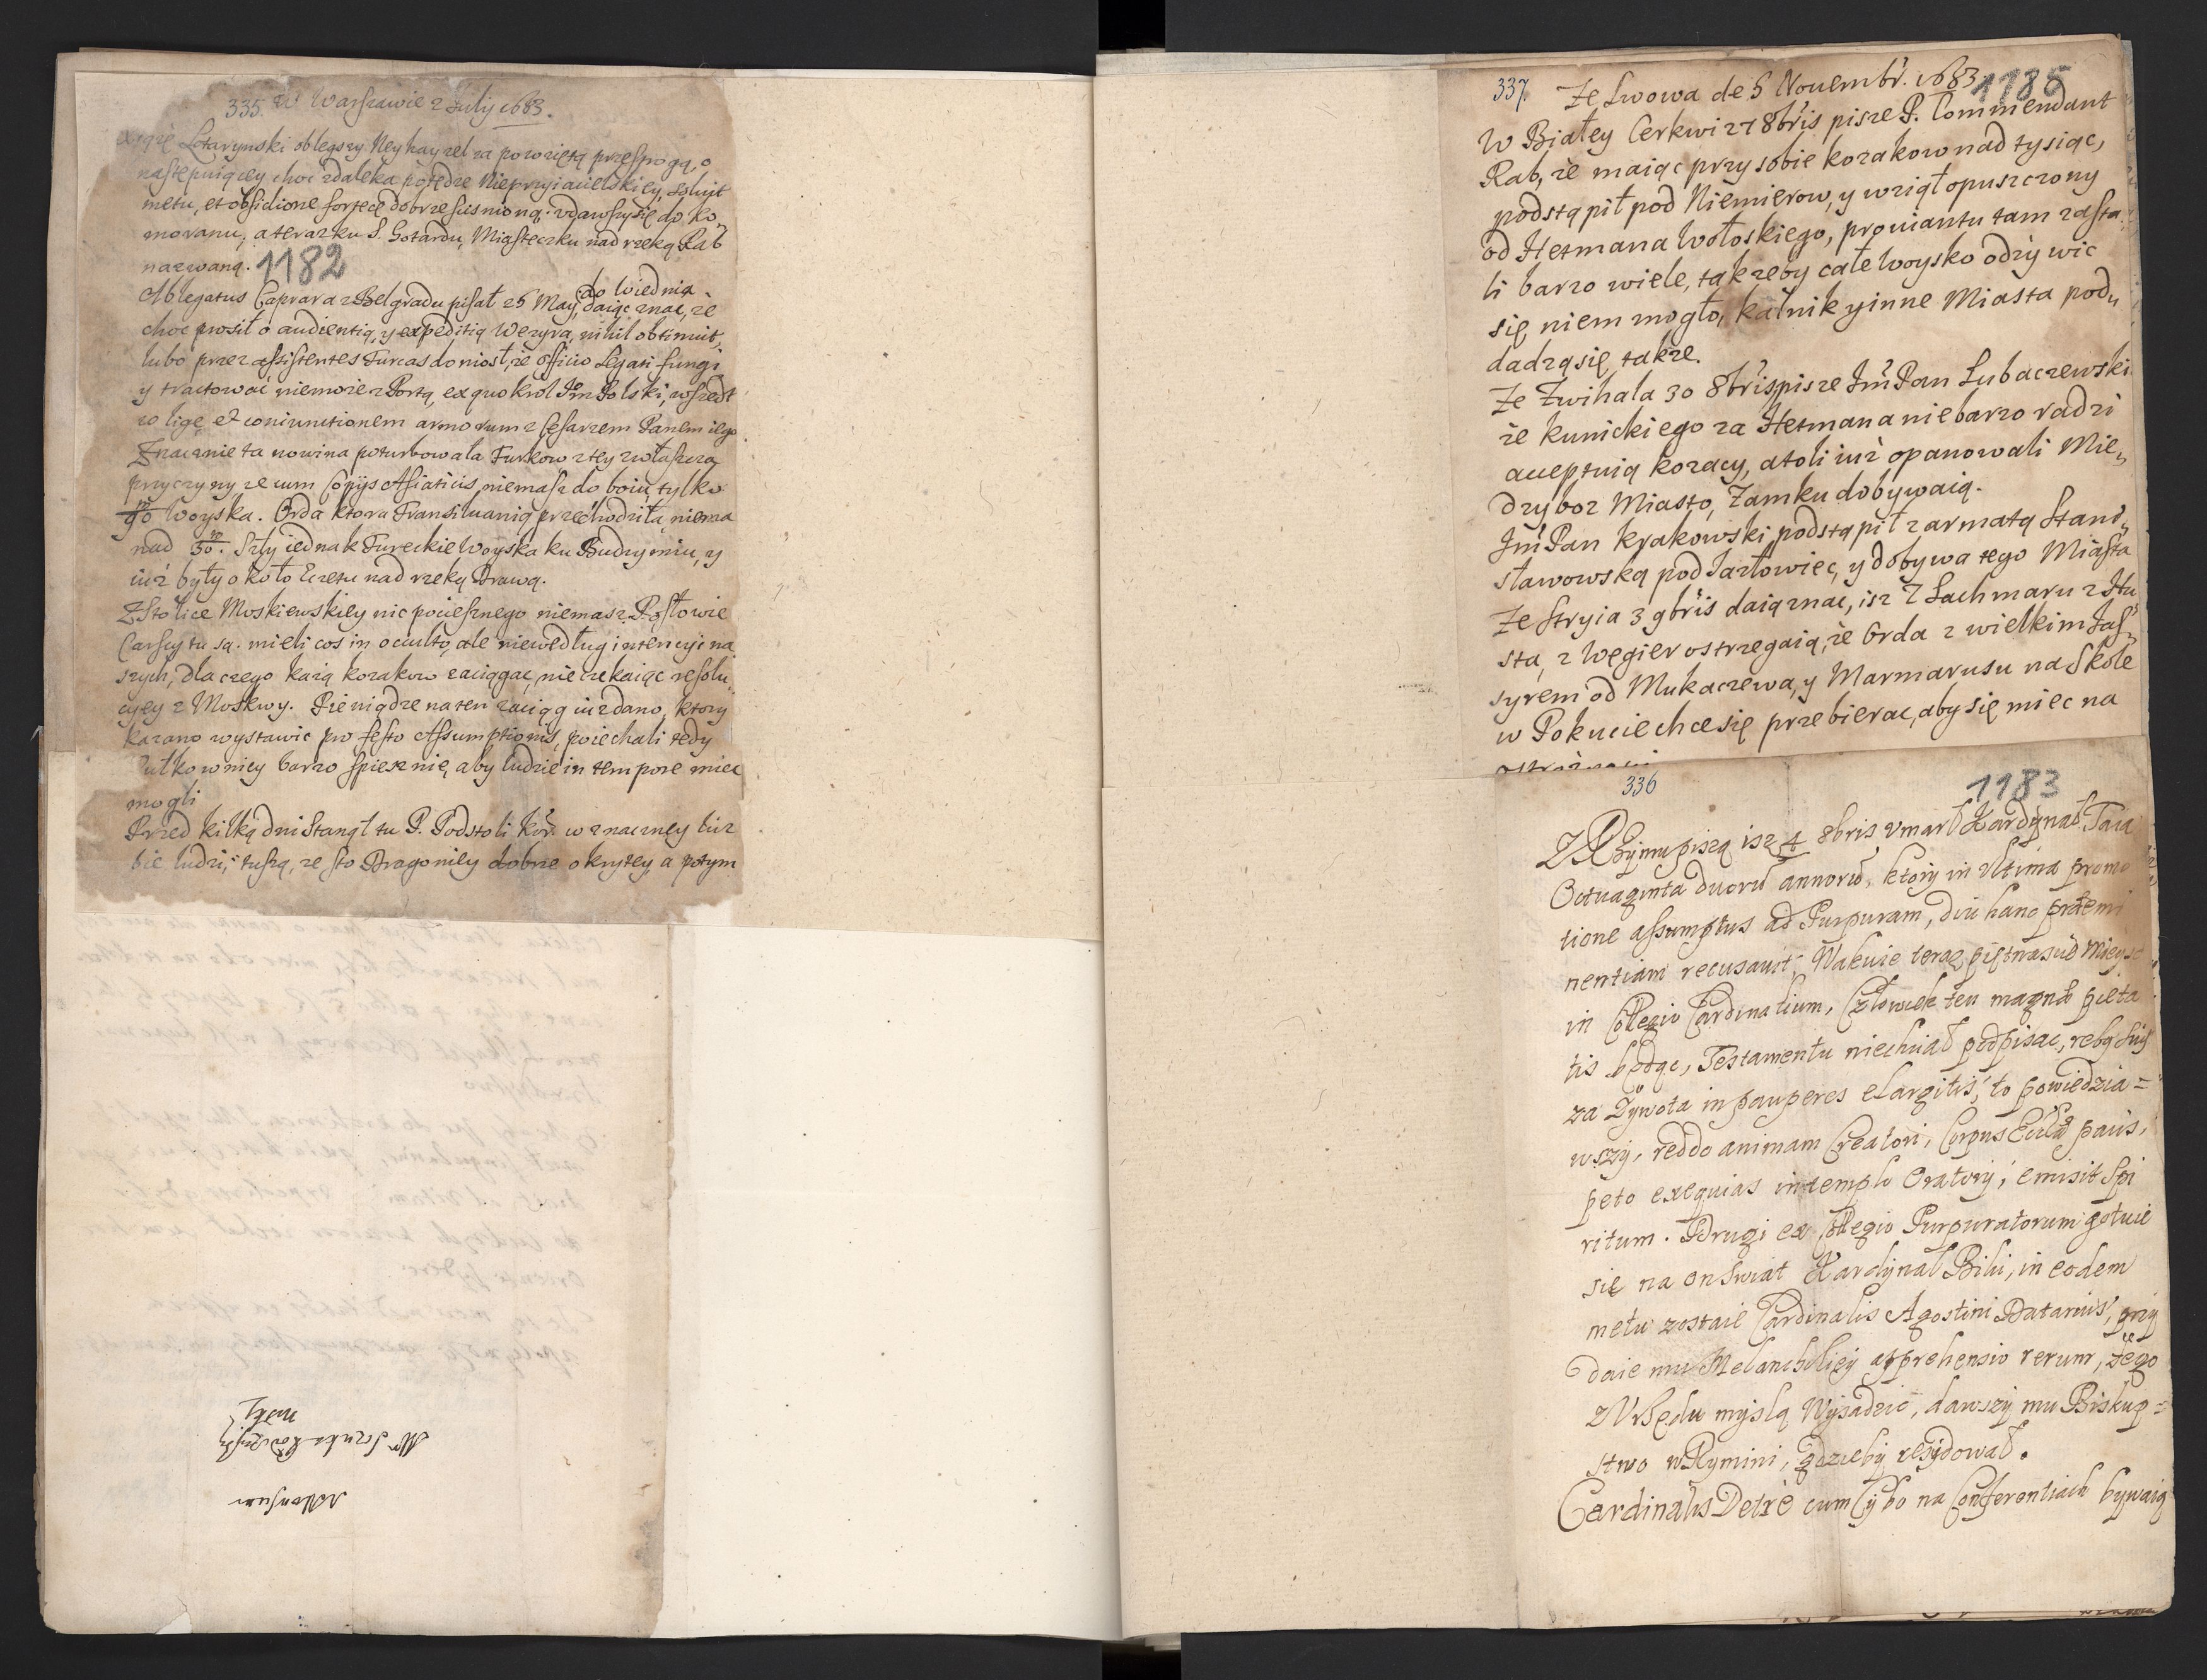 335. W Warszawie 2 Julij 1683.
Xiąże Lotarynski oblegszy Neyhayzel za powziętą przestrogą, o
następuiącey choć zdaleka potędze Nieprzyiacielskiey, soluit
metu, et obsidione fortecę dobrze scisnioną. vdawszy się do Ko„
moranu, a teraz ku S. Gotardu, Miasteczku nad rzeką Rab
nazwaną. 1182
do Wiednia
Ablegatus Caprara z Belgradu pisał 25 May, daiąc znac, że
choc prosił o audientią, y expeditią Wezyra, nihil obtinuit,
lubo przez assistentes Turcas doniosł, że officio Legati fungi
y tractowac niemoże z Portą, ex quo krol Jm Polski, wszedł
w ligę et coniunctionem armorum z Cesarzem Panem iego
Znacznie ta nowina poturbowała Turkow z tey zwłaszcza
przyczyny, ze cum Copijs Asiaticis niemasz do boiu, tylko
90 Woyska. Orda ktora Transiluanią przechodziła, niema
nad 30. Szły iednak Tureckie Woyska ku Budzyniu, y
iuż były około Ezetu nad rzeką Drawą.
Z Stolice Moskiewskiey nic pociesznego niemasz, Posłowie
Carscy tu są. mieli cos in occulto, ale niewedług intencyi na
szych, dla czego każą kozakow zaciągac, nie czekaiąc resolu„
cyey z Moskwy. Pieniądze na ten zaciąg iuż dano, ktory
kazano wystawic pro festo Assumptionis, poiechali tedy
Pułkownicy barzo spiesznie, aby ludzie in tempore miec
mogli
Przed kilką dni stanął tu P. Podstoli kor. w znaczney licz
bie ludzi, tuszą, ze sto Dragoniey dobrze okrytey, a potym
Monsieur
337. Ze Lwowa de 5 Nouembr. 1683. 1185
W Białey Cerkwi 27 8bris pisze P. Commendant
Rab, że maiąc przy sobie kozakow nad tysiąc,
podstąpił pod Niemierow, y wziął opuszczony
od Hetmana Wołoskiego, prouiantu tam zasta„
li barzo wiele, tak zeby całe Woysko odżywic
się niem mogło, kalnik y inne Miasta podu
dadzą się także.
Ze Zwihala 30 8bris pisze Jm Pan Lubaczewski
że kunickiego za Hetmana niebarzo radzi
acceptuią kozacy, atoli iuż opanowali Mie„
dzyboz Miasto, Zamku dobywaią.
Jm Pan krakowski podstąpił z armatą Stani„
sławowską pod Jazłowiec, y dobywa tego Miasta
Ze Stryia 3 9bris daią znac, isz z Sachmaru z Hu
sta, z Węgier ostrzegaią, że Orda z wielkim Jas„
syrem od Mukaczewa, y Marmarusu na Skole
w Pokucie chce się przebierac, aby się miec na
336 1183
Z Rzymu piszą isz 4 8bris vmarł Kardynał Taia
Octuaginta duorū annorū, ktory in Vltima promo
tione assumptus ad Purpuram, diu hanc praemi
nentiam recusauit; Wakuie teraz piętnascie Mieysc
in Collegio Cardinalium, Człowiek ten magnae pieta
tis będąc, Testamentu niechciał podpisac, rebq suis
za Żywota in pauperes elargitis, to powiedzia=
wszy, reddo animam Creatori, Corpus Eccłae pauis,
peto exequias in templo Oratorij, emisit Spi
ritum. Drugi ex Collegio Purpuratorum gotuie
się na on swiat Kardynał Bihi, in eodem
metu zostaie Cardinalis Agostini Datarius, przy
daie mu Melancholiey apprehensio rerum, że go
z Vrzędu myslą Wysadzic, dawszy mu Biskup=
stwo w Rymini, gdzieby residował.
Cardinalis Detré cum Cybo na Conferentiach bywaią